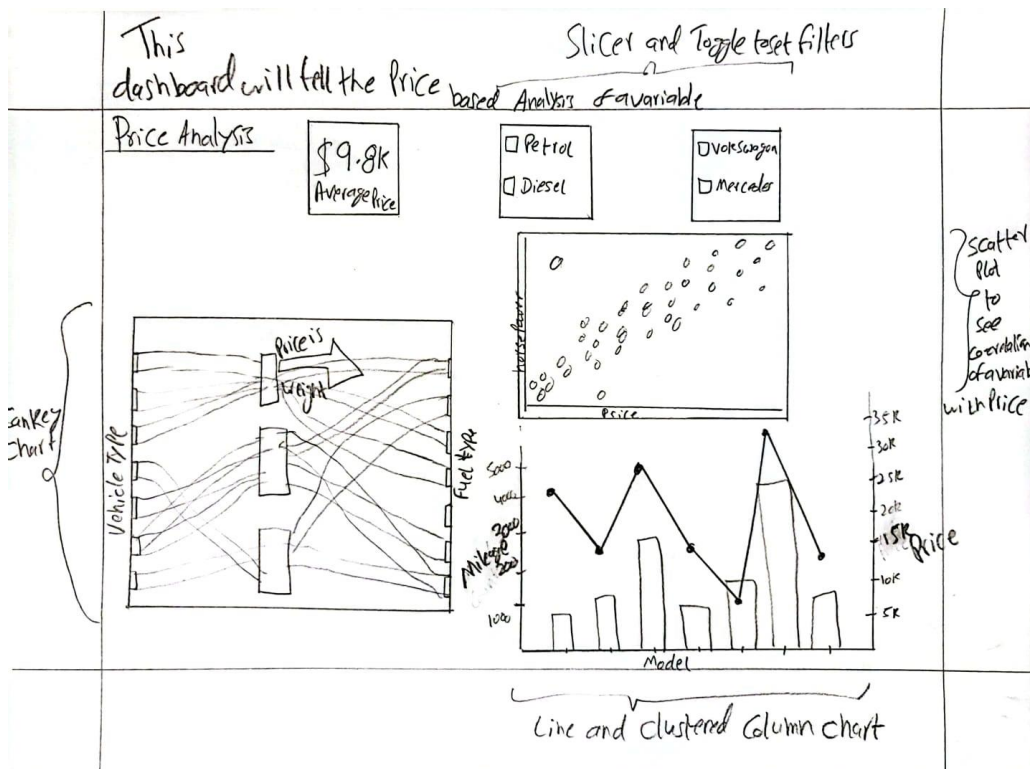 This
dashboard will tell the Price based Analysis of a variable
Slicer and Toggle to set filters
Price Analysis
$9.8K
Average Price
Petrol
Diesel
Volkswagon
Mercedes
Horse Power
Price
Scatter
Plot
to
see
correlation
of a variab
with Price
ankey
Chart
Vehicle Type
Price is
Weight
Fuel type
5000
4000
3000
200
1000
Mileage
35K
30K
25K
20K
15K
10K
5K
Price
Model
Line and Clustered Column Chart